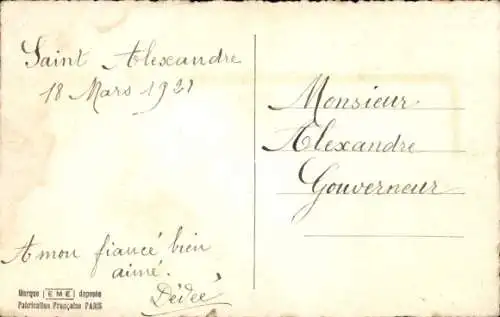 Saint Alexandre
18 Mars 1921
Monsieur
Alexandre
Gouverneur
A mon fiancé bien
aimé.
Dédée
Marque EME deposée
Fabrication Française PARIS